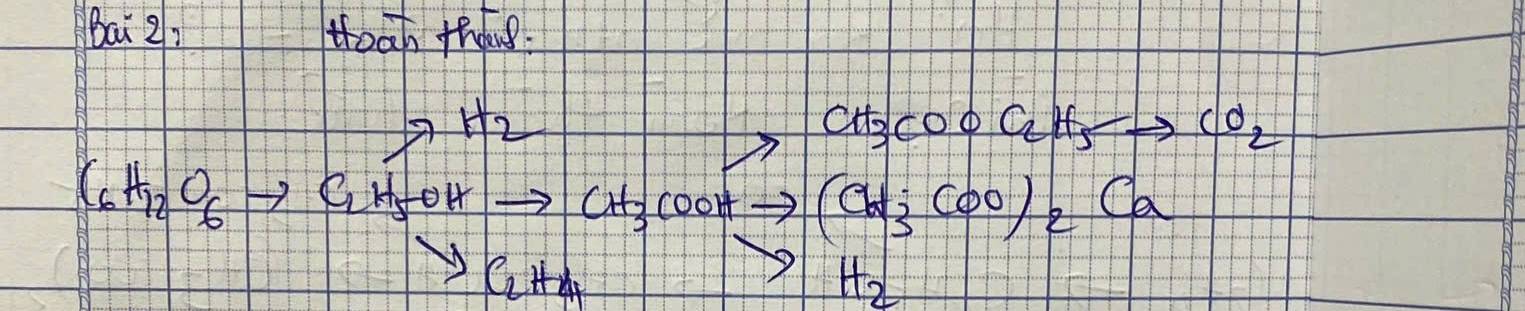 Bài 2: Hoàn thành:
↗ H2 ↗ CH3COO C2H5 → CO2
C6H12O6 → C2H5OH → CH3COOH → (CH3COO)2 Ca
↘ C2H4 ↘ H2